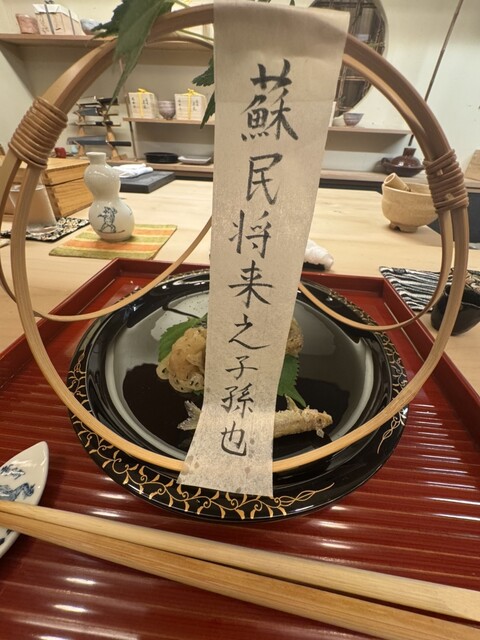 蘇民将来之子孫也